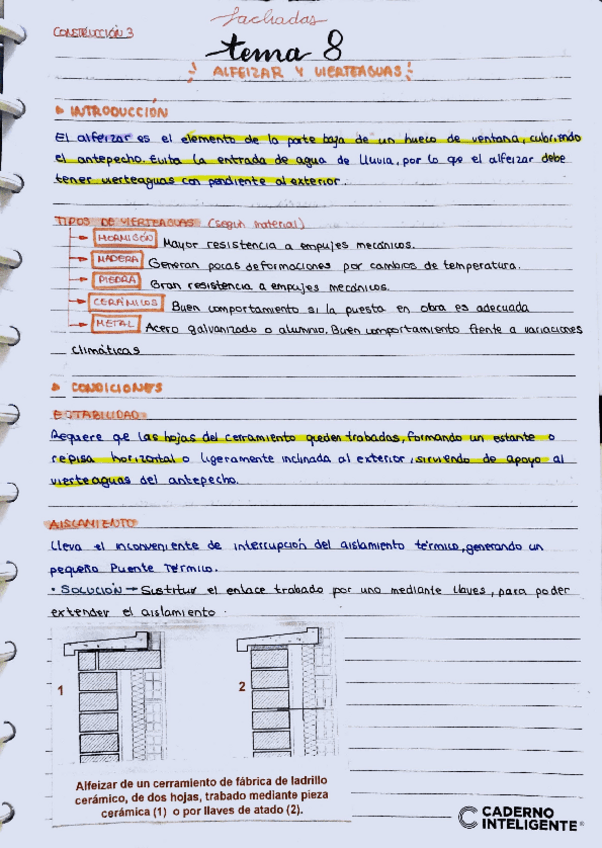 fachadas
CONSTRUCCIÓN 3
tema 8
ALFEIZAR Y VIERTEAGUAS
INTRODUCCIÓN
El alfeizar es el elemento de la parte baja de un hueco de ventana, cubriendo
el antepecho. Evita la entrada de agua de lluvia, por lo que el alfeizar debe
tener vierteaguas con pendiente al exterior.
TIPOS DE VIERTEAGUAS (según material)
HORMIGÓN Mayor resistencia a empujes mecánicos.
MADERA Generan pocas deformaciones por cambios de temperatura.
PIEDRA Gran resistencia a empujes mecánicos.
CERÁMICOS Buen comportamiento si la puesta en obra es adecuada
METAL Acero galvanizado o aluminio. Buen comportamiento frente a variaciones
climáticas
CONDICIONES
ESTABILIDAD
Requiere que las hojas del cerramiento queden trabadas, formando un estante o
repisa horizontal o ligeramente inclinada al exterior, sirviendo de apoyo al
vierteaguas del antepecho.
AISLAMIENTO
Lleva el inconveniente de interrupción del aislamiento térmico, generando un
pequeño Puente Térmico.
· SOLUCIÓN → Sustituir el enlace trabado por uno mediante llaves, para poder
extender el aislamiento.
1
2
Alfeizar de un cerramiento de fábrica de ladrillo
cerámico, de dos hojas, trabado mediante pieza
cerámica (1) o por llaves de atado (2).
CADERNO
INTELIGENTE®